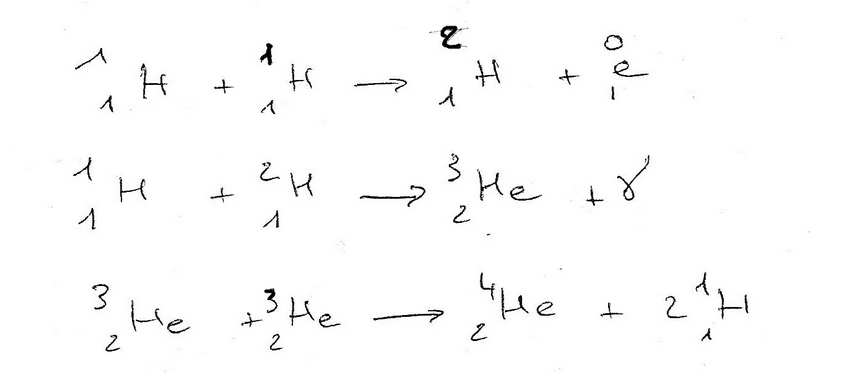 ¹₁H + ¹₁H → ²₁H + ⁰₁e
¹₁H + ²₁H → ³₂He + γ
³₂He + ³₂He → ⁴₂He + 2 ¹₁H